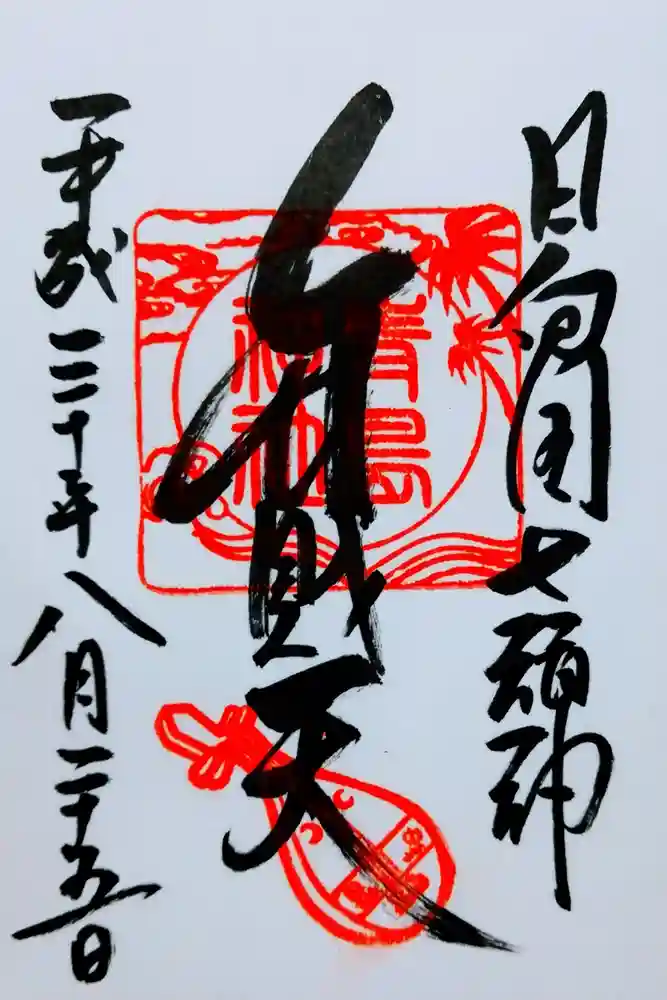 日向國七福神
弁財天
青島
神社
平成三十年八月二十五日